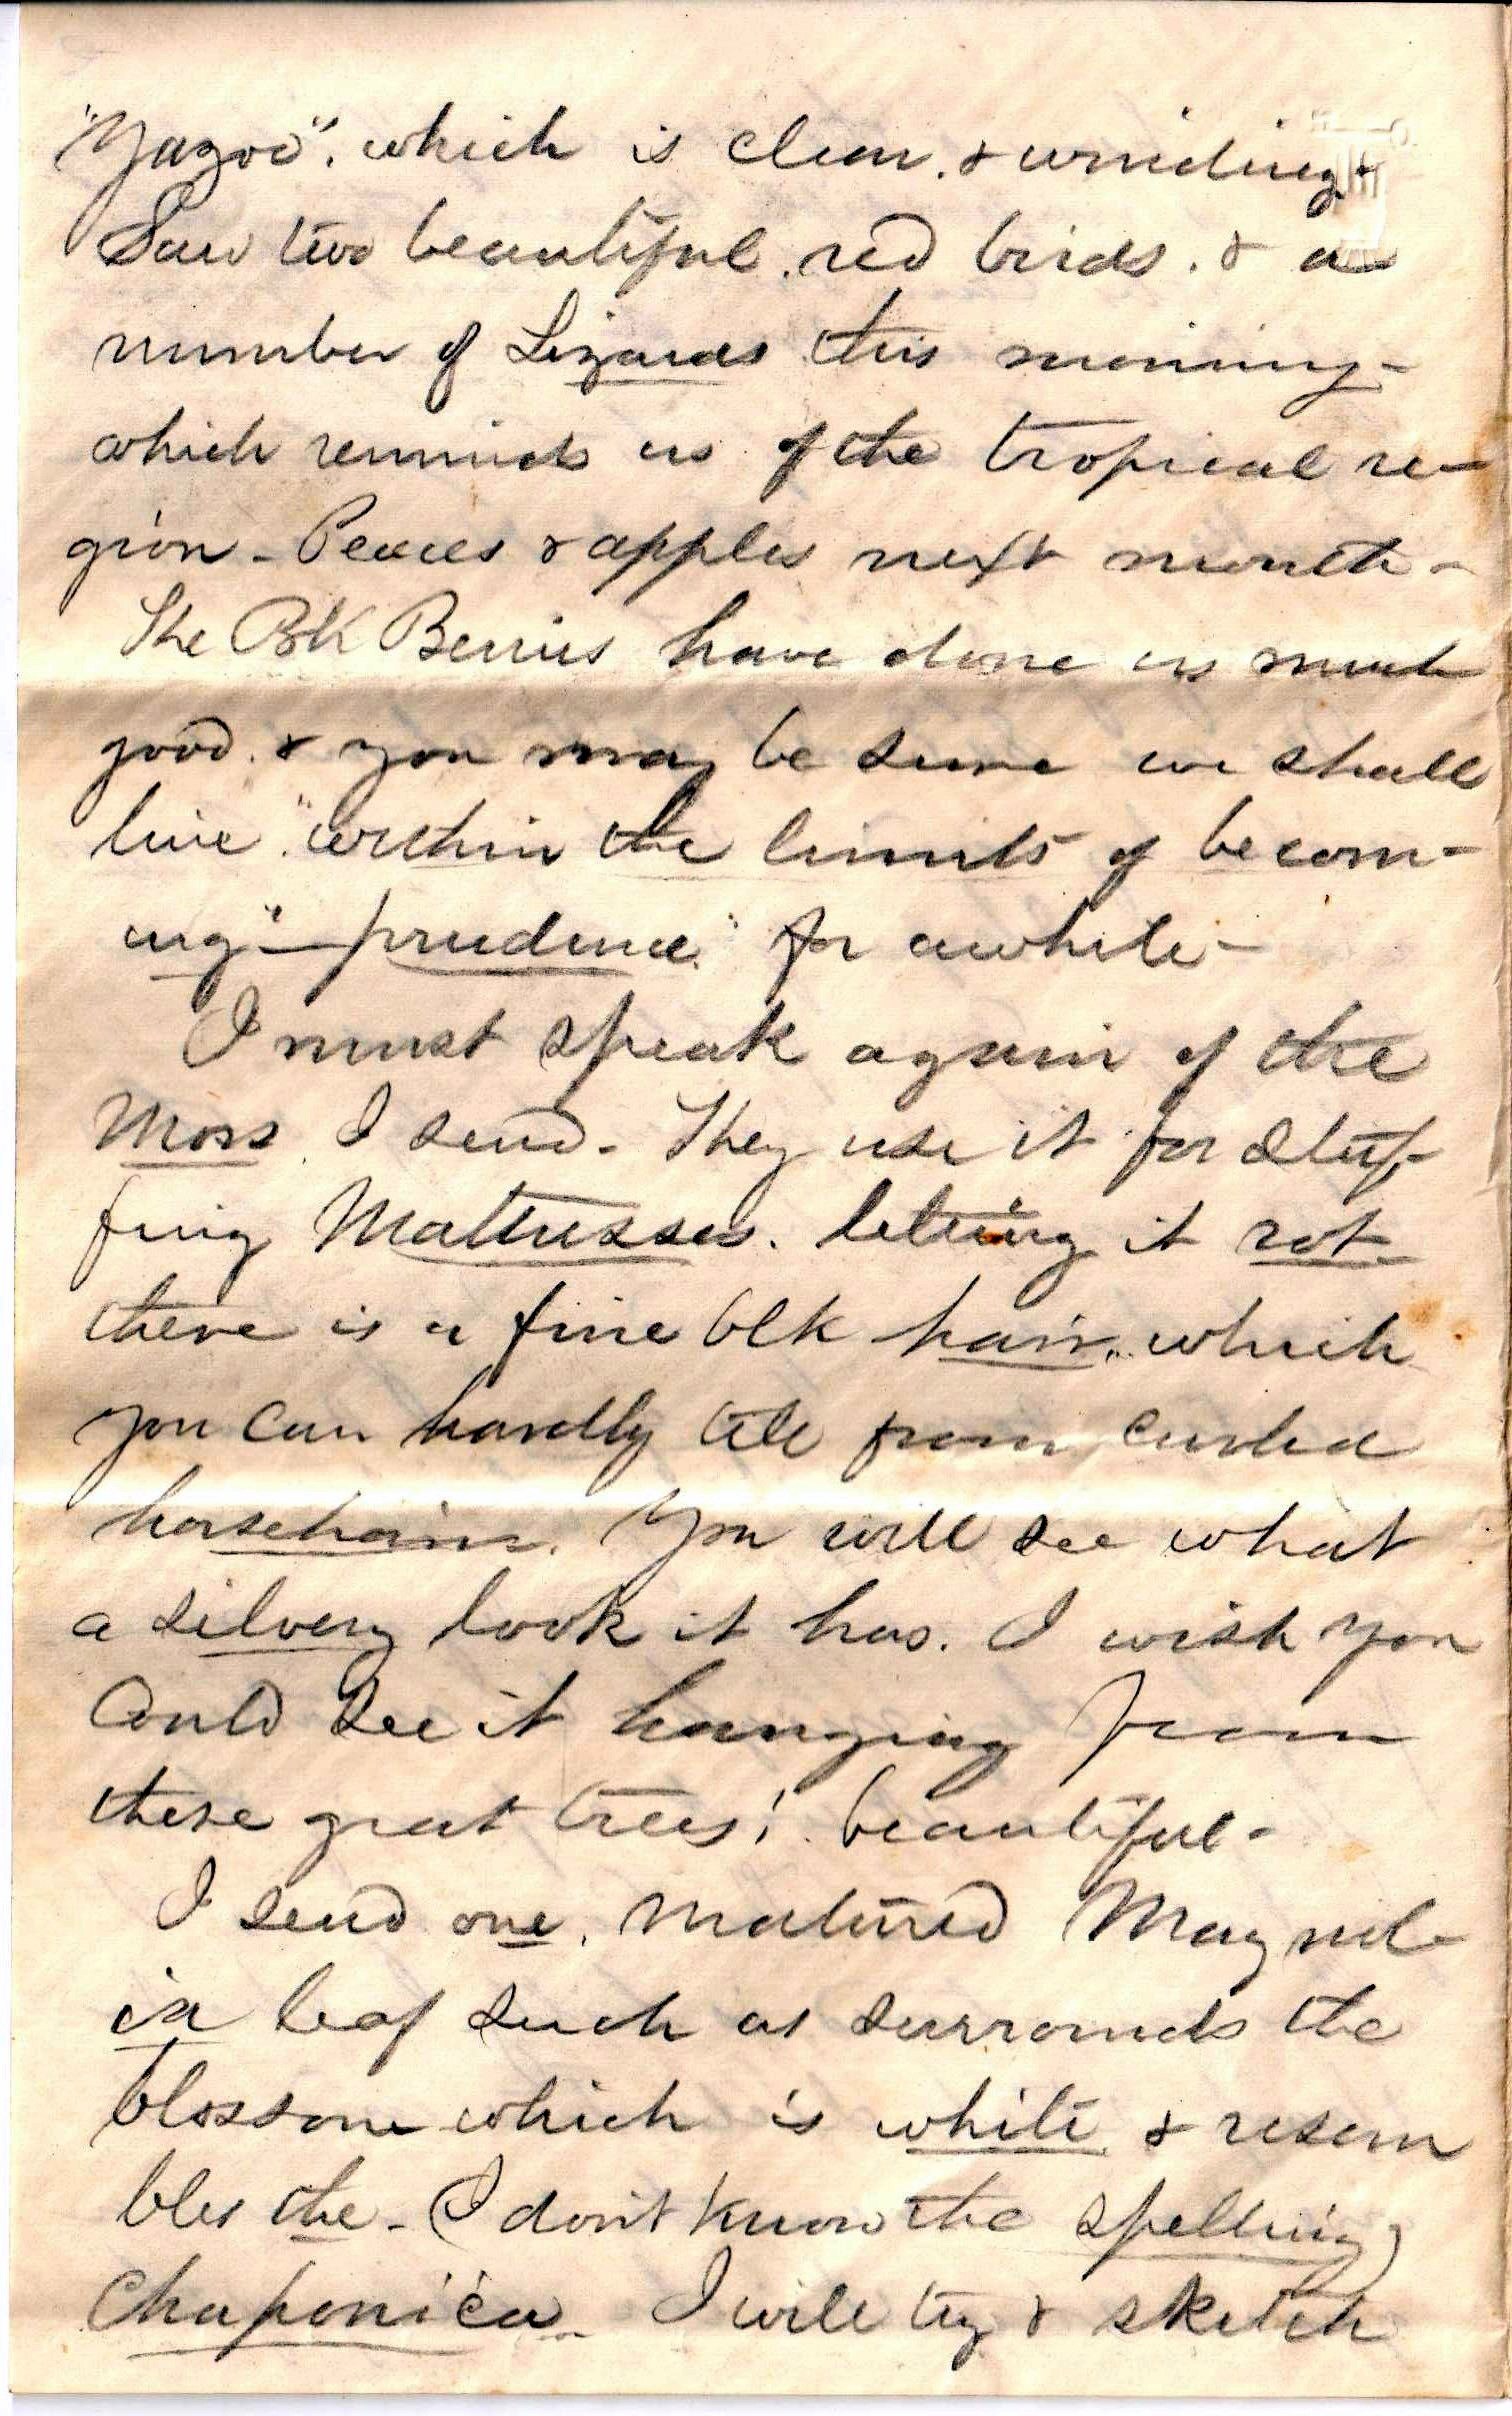 "Yazoo". which is clear. & winding-
Saw two beautiful. red birds. & a
number of Lizards this morning-
which reminds us of the tropical re-
gion - Peaces & apples next month -
The Blk Berries have done us much
good. & you may be sure we shall
live "within the limits of becom-
ing" - prudence." for awhile -
I must speak again of the
Moss I send - They use it for stuf-
fing Mattresses. letting it rot -
there is a fine blk hair,, which
you can hardly tell from curled
horsehair. You will see what
a silvery look it has. I wish you
Could see it hanging from
these great trees! beautiful -
I send one. matured Magnol-
ia leaf such as surrounds the
blossom which is white & resem
bles the - (I don't know the spelling)
Chaponica - I will try & sketch